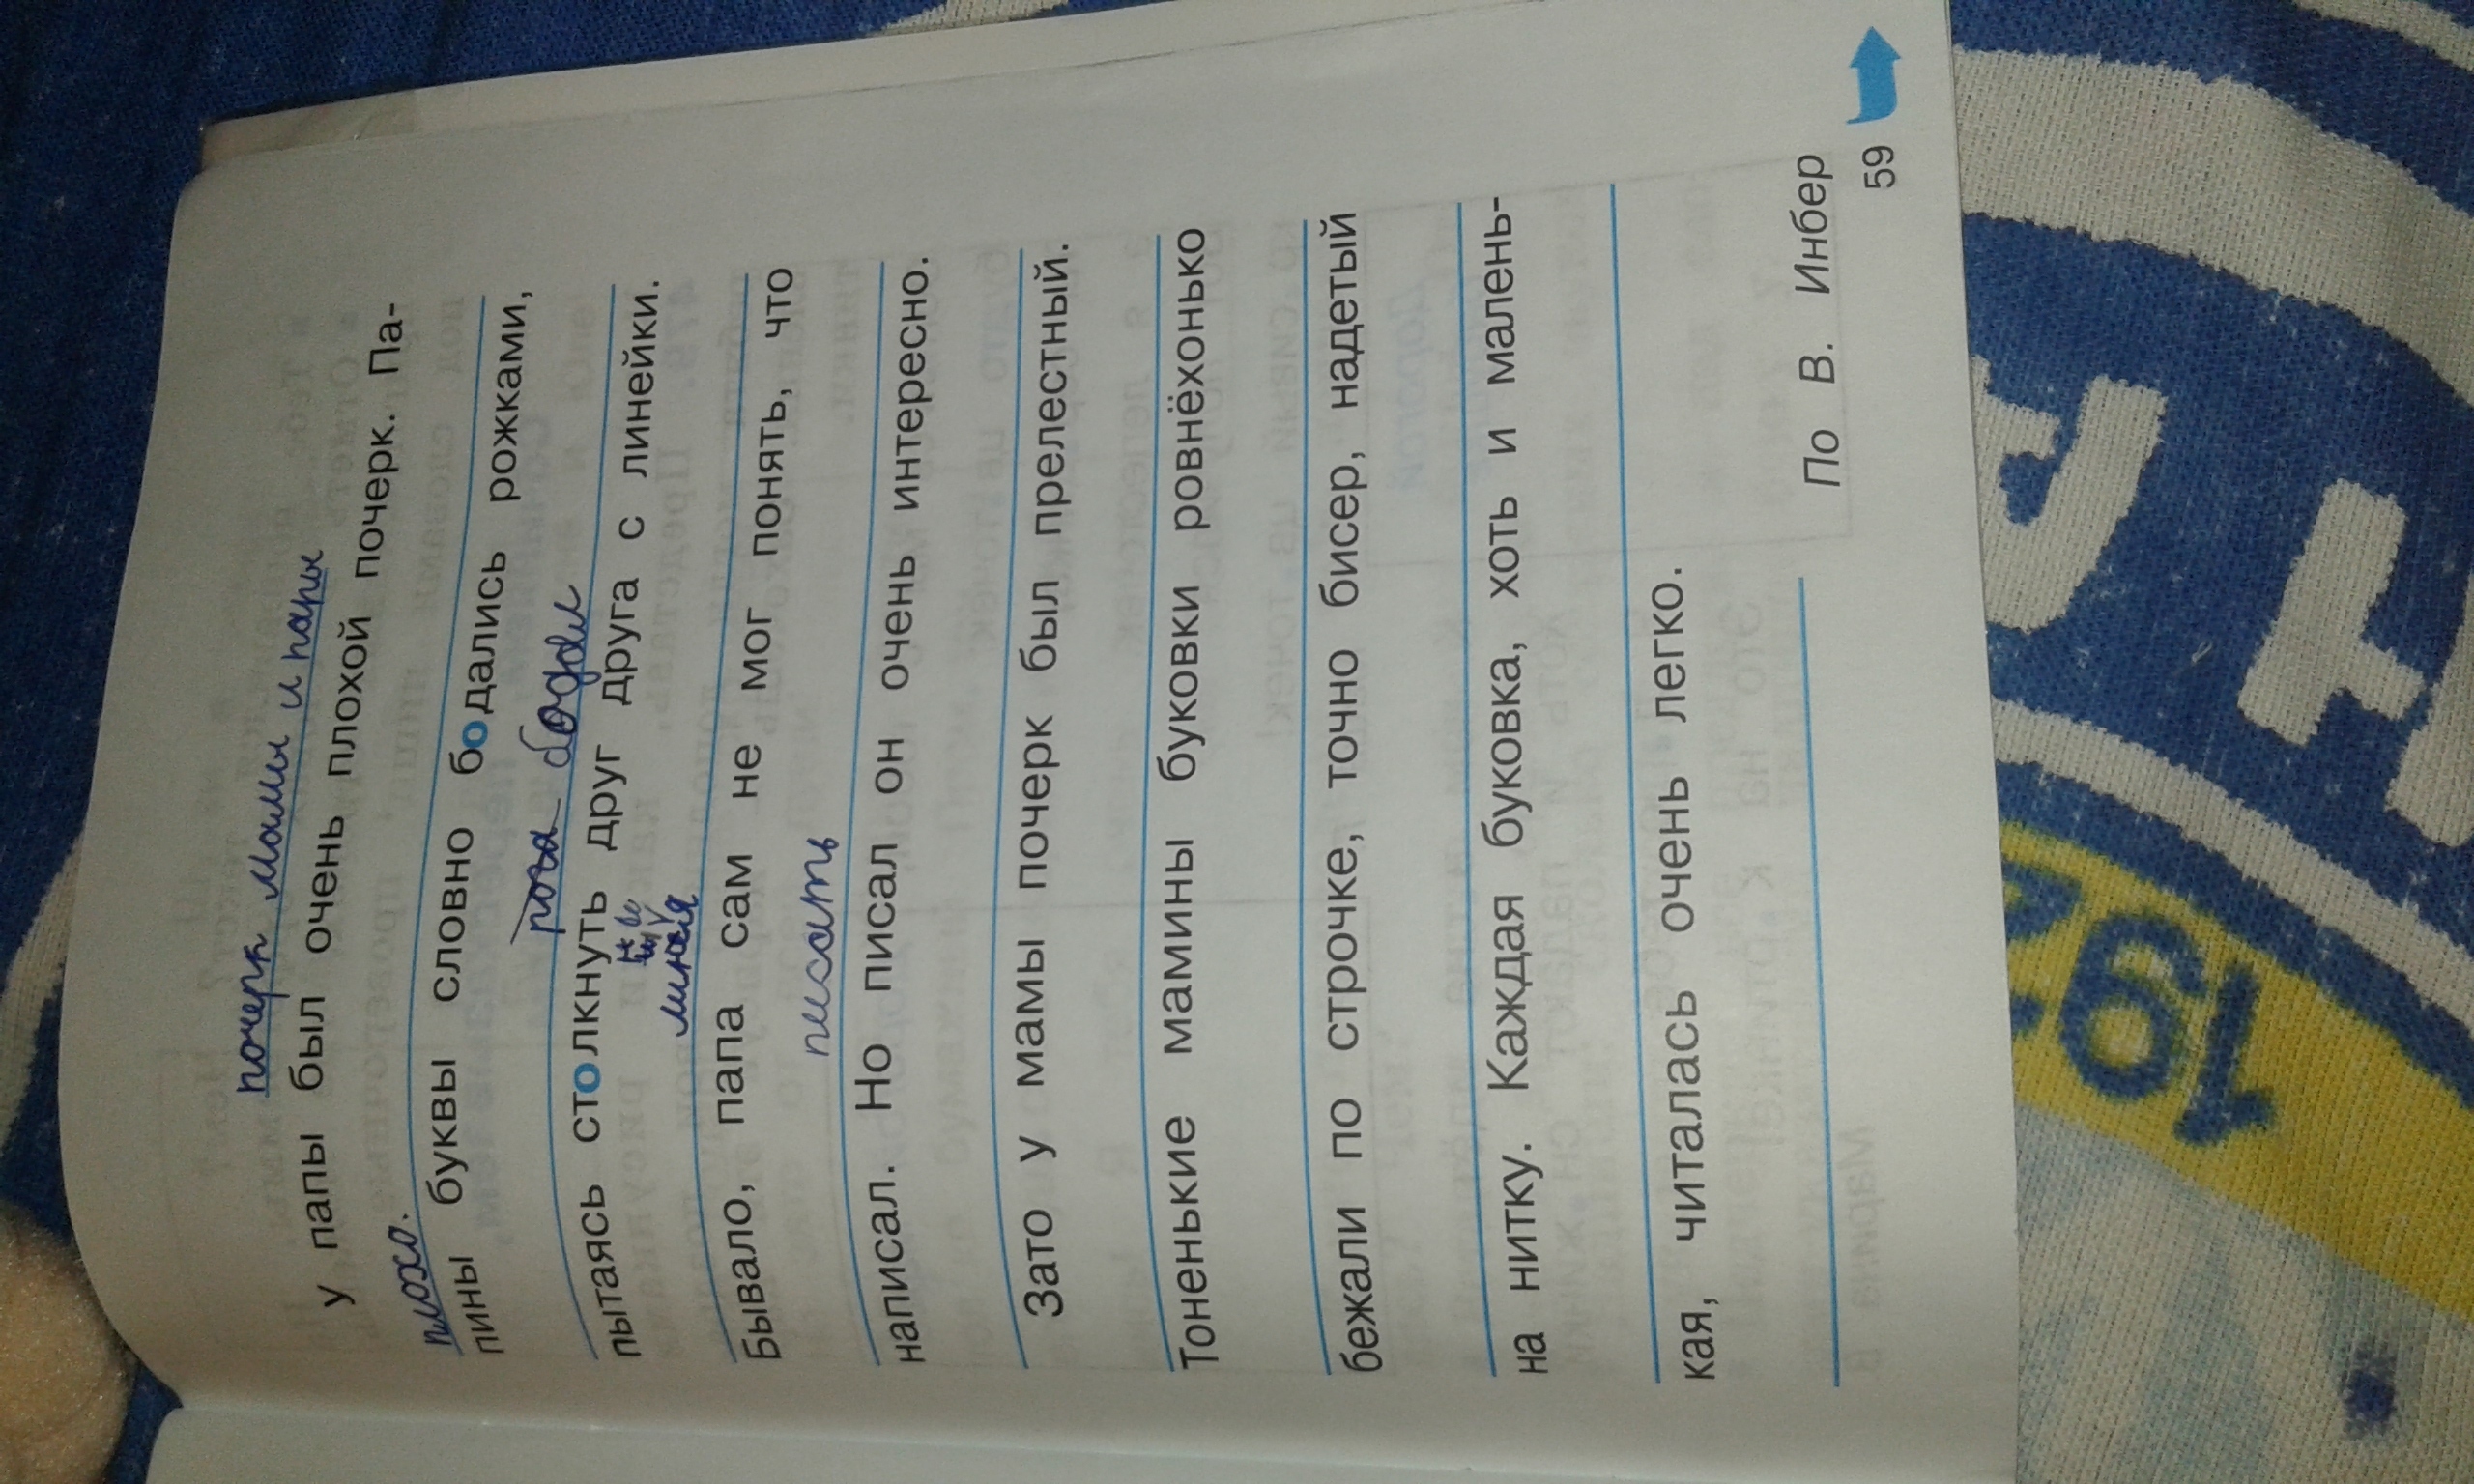 почерк мамы и папы
у папы был очень плохой почерк. Па-
плохо.
пины буквы словно бодались рожками,
рога бодял
пытаясь столкнуть друг друга с линейки.
линея
Бывало, папа сам не мог понять, что
писать
написал. Но писал он очень интересно.
Зато у мамы почерк был прелестный.
Тоненькие мамины буковки ровнёхонько
бежали по строчке, точно бисер, надетый
на нитку. Каждая буковка, хоть и малень-
кая, читалась очень легко.
По В. Инбер
59
192